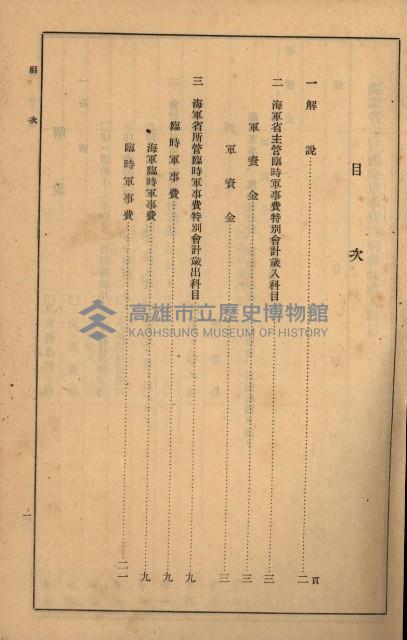 目次
一 解說……二頁
二 海軍省主管臨時軍事費特別會計歲入科目……三
軍資金……三
軍資金……三
三 海軍省所管臨時軍事費特別會計歲出科目……九
臨時軍事費……九
海軍臨時軍事費……九
臨時軍事費……二一
目次
一
高雄市立歷史博物館
KAOHSIUNG MUSEUM OF HISTORY